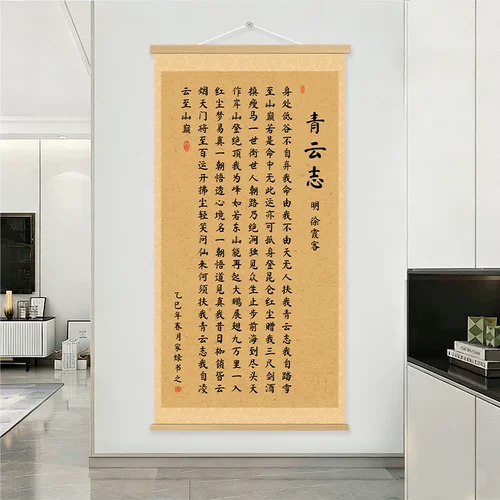 青云志
明 徐霞客
身处低谷不自弃我命由我不由天无人扶我青云志我自踏雪
至山巅若是命中无此运亦可孤身登昆仑红尘赠我三尺剑酒
换瘦马一世街世人朝路乃绝涧独见众生止步前海到尽头天
作岸山登绝顶我为峰如若东山能再起大鹏展翅九万里一入
红尘梦易真一朝悟透心境名一朝悟道见真我昔日枷锁皆云
烟天门将至百运开拂尘轻笑问仙来何须扶我青云志我自凌
云至山巅
乙巳年春月家绿书之